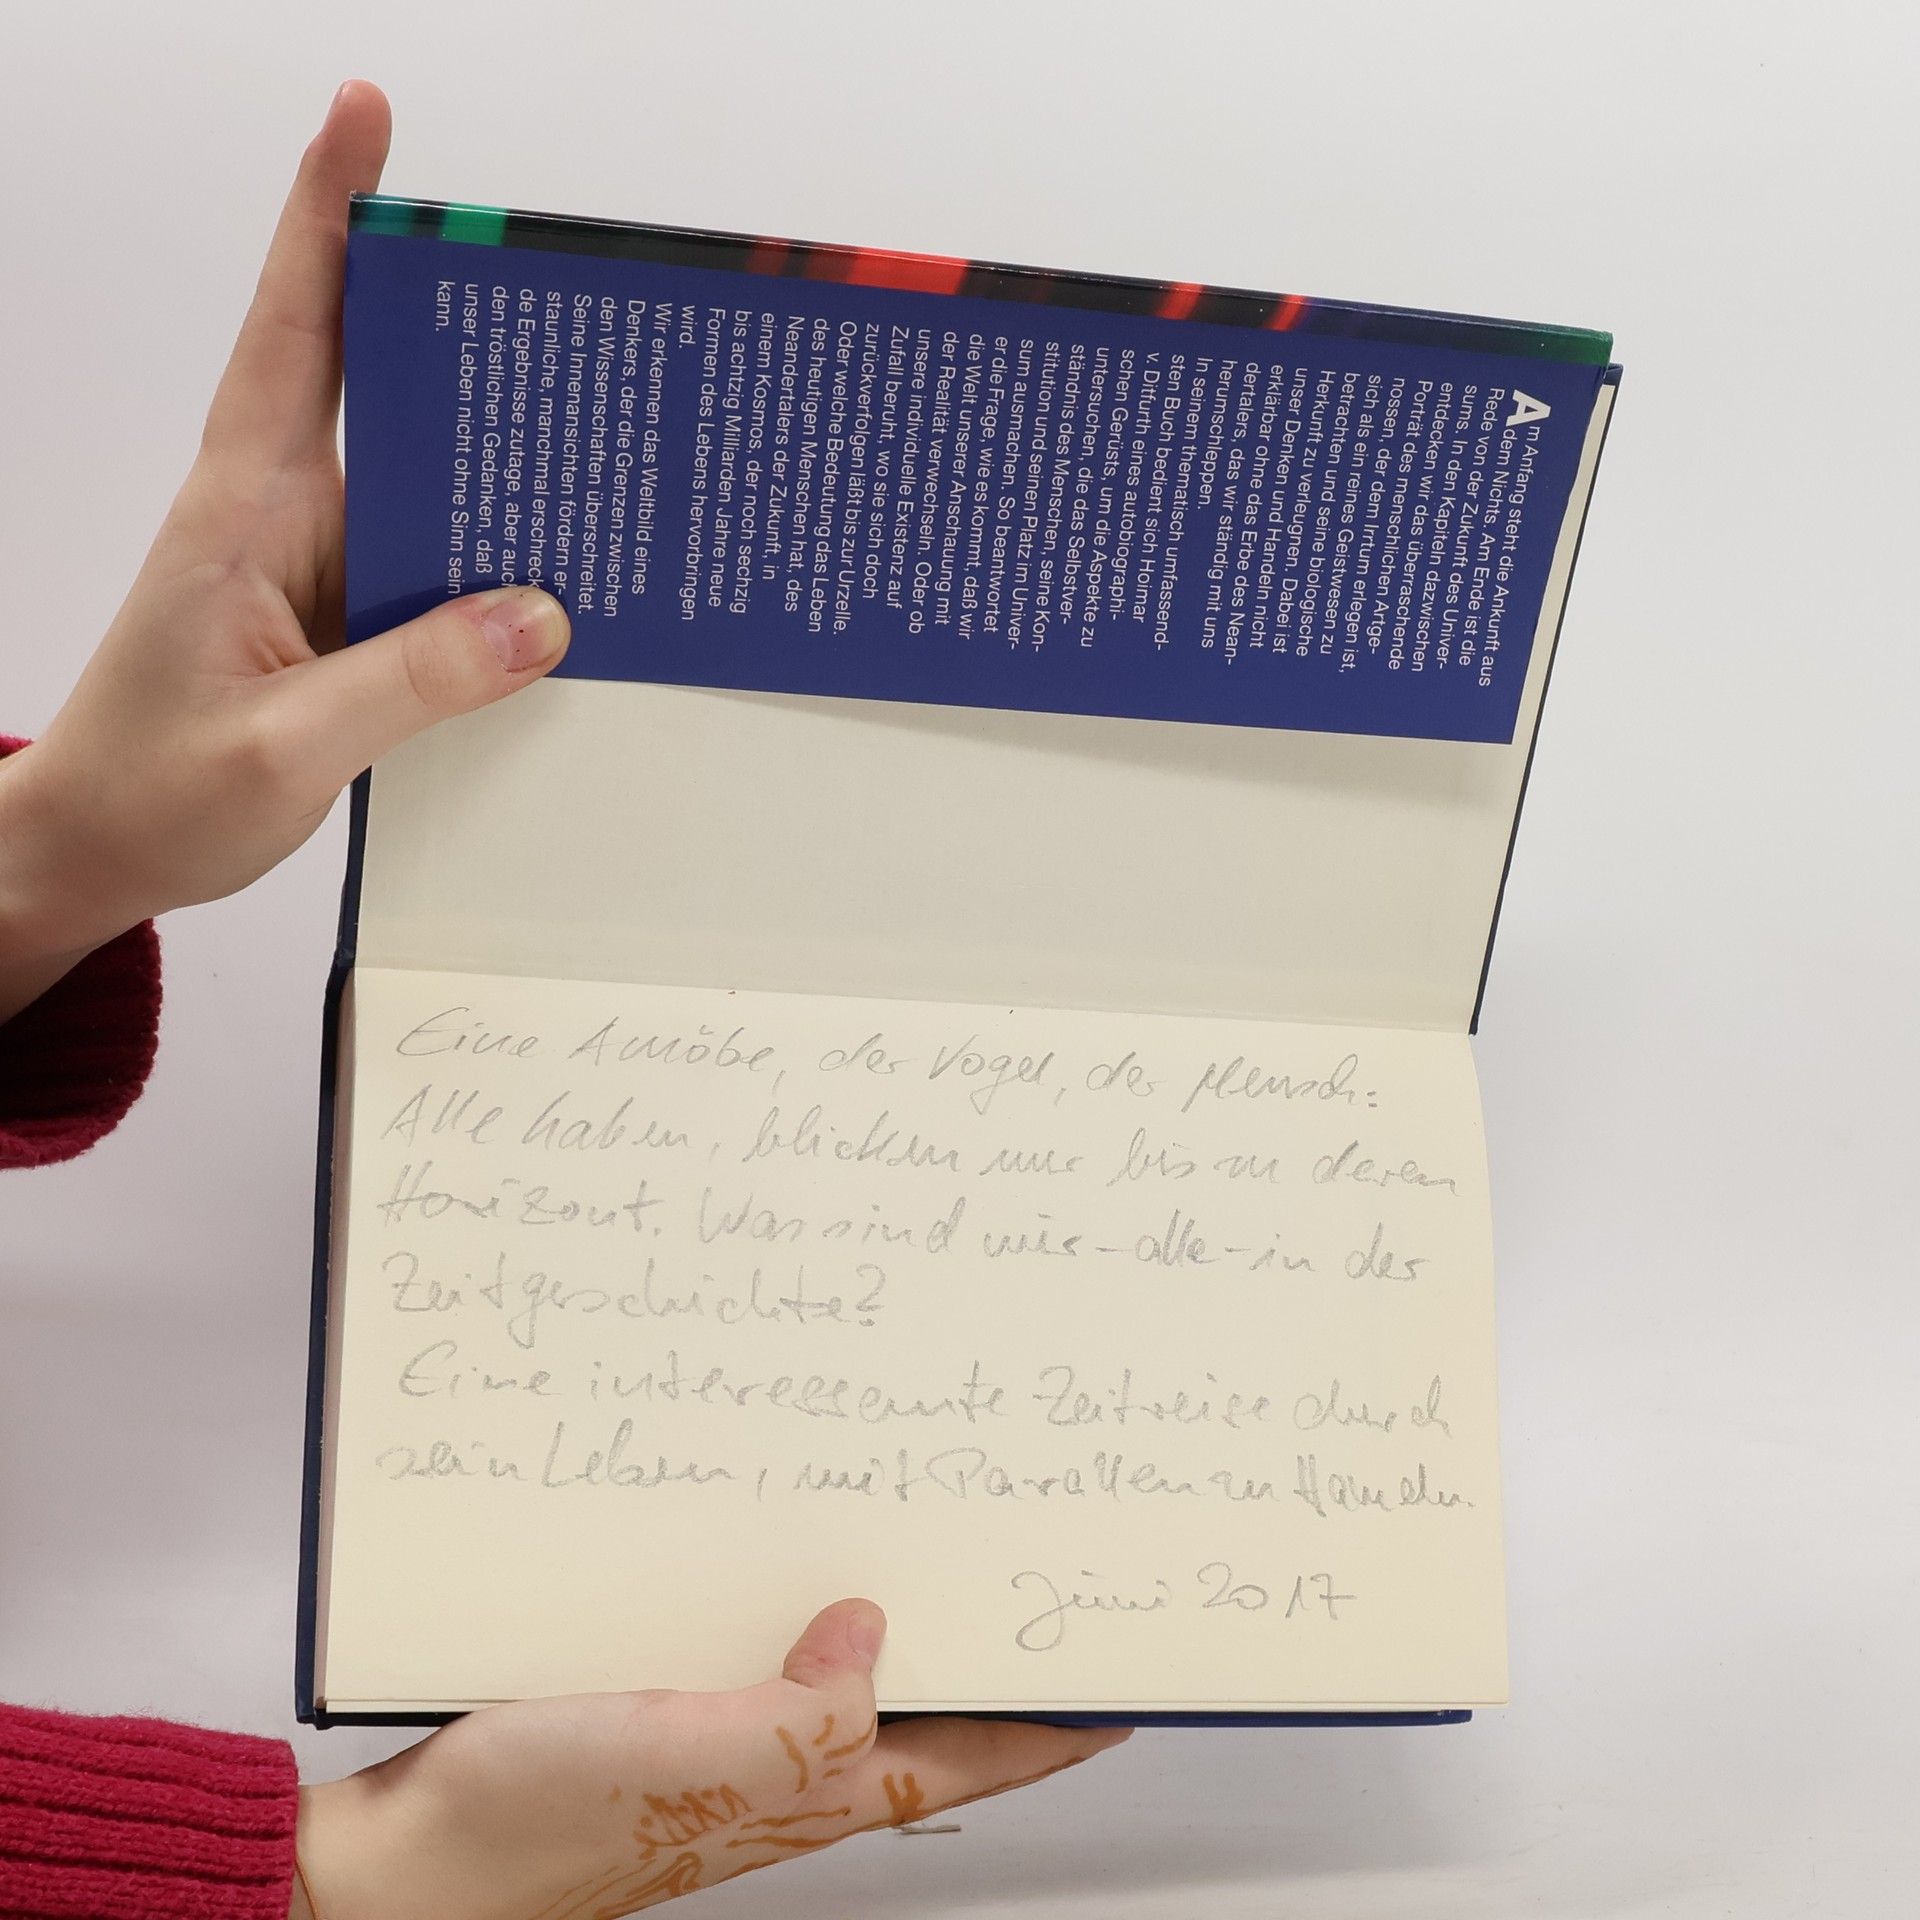 Am Anfang steht die Ankunft aus
dem Nichts. Am Ende ist die
Rede von der Zukunft des Univer-
sums. In den Kapiteln dazwischen
entdecken wir das überraschende
Porträt des menschlichen Artge-
nossen, der dem Irrtum erlegen ist,
sich als ein reines Geistwesen zu
betrachten und seine biologische
Herkunft zu verleugnen. Dabei ist
unser Denken und Handeln nicht
erklärbar ohne das Erbe des Nean-
dertalers, das wir ständig mit uns
herumschleppen.
In seinem thematisch umfassend-
sten Buch bedient sich Hoimar
v. Ditfurth eines autobiographi-
schen Gerüsts, um die Aspekte zu
untersuchen, die das Selbstver-
ständnis des Menschen, seine Kon-
stitution und seinen Platz im Univer-
sum ausmachen. So beantwortet
er die Frage, wie es kommt, daß wir
die Welt unserer Anschauung mit
der Realität verwechseln. Oder ob
unsere individuelle Existenz auf
Zufall beruht, wo sie sich doch
zurückverfolgen läßt bis zur Urzelle.
Oder welche Bedeutung das Leben
des heutigen Menschen hat, des
Neandertalers der Zukunft, in
einem Kosmos, der noch sechzig
bis achtzig Milliarden Jahre neue
Formen des Lebens hervorbringen
wird.
Wir erkennen das Weltbild eines
Denkers, der die Grenzen zwischen
den Wissenschaften überschreitet.
Seine Innenansichten fördern er-
staunliche, manchmal erschrecken-
de Ergebnisse zutage, aber auch
den tröstlichen Gedanken, daß
unser Leben nicht ohne Sinn sein
kann.
Eine Amöbe, der Vogel, der Mensch:
Alle haben, blicken nur bis zu deren
Horizont. Was sind wir – alle – in der
Zeitgeschichte?
Eine interessante Zeitreise durch
sein Leben, mit Parallen zu
Juni 2017